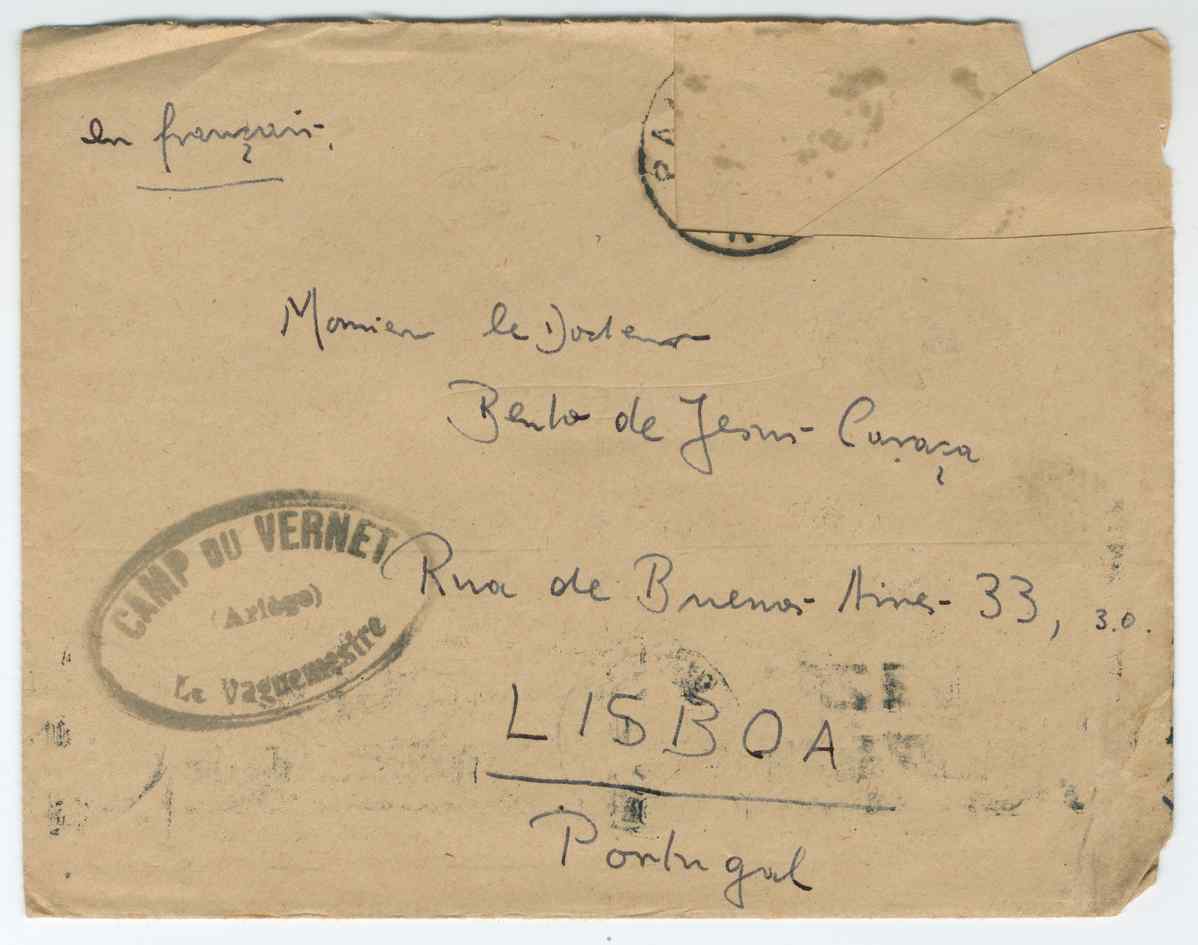 en français.
PA
Monsieur le Docteur
Bento de Jesus Caraça
CAMP DU VERNET
(Ariège)
Le Vaguemestre
Rua de Buenos Aires 33, 3.o.
LISBOA
Portugal